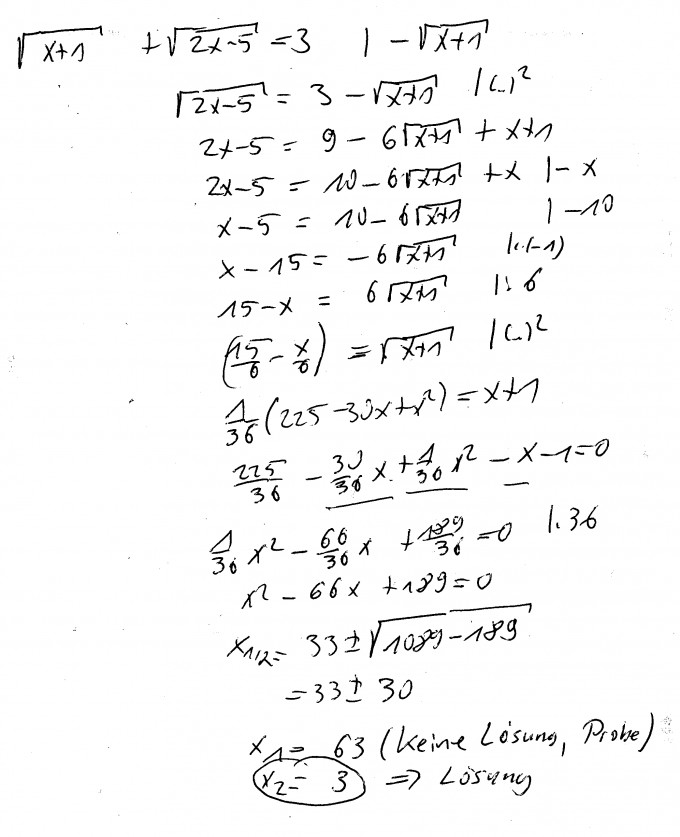 √(x+1) + √(2x-5) = 3 | -√(x+1)
√(2x-5) = 3 - √(x+1) |(..)²
2x-5 = 9 - 6√(x+1) + x+1
2x-5 = 10 - 6√(x+1) + x | - x
x-5 = 10 - 6√(x+1) | -10
x - 15 = -6√(x+1) |·(-1)
15-x = 6√(x+1) |: 6
(15/6 - x/6) = √(x+1) |(..)²
1/36 (225 - 30x + x²) = x+1
225/36 - 30/36 x + 1/36 x² - x - 1 = 0
1/36 x² - 66/36 x + 189/36 = 0 |·36
x² - 66x + 189 = 0
x1/2 = 33 ± √(1089 - 189)
= 33 ± 30
x1 = 63 (keine Lösung, Probe)
x2 = 3 => Lösung